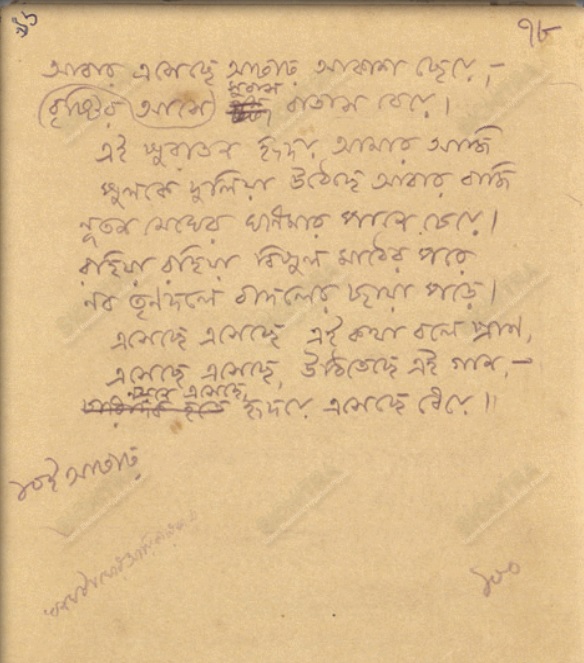 ৭৮
আবার এসেছে আষাঢ় আকাশ ছেয়ে,—
সুবাস
বৃষ্টির আসে বাতাস বেয়ে।
এই পুরাতন হৃদয় আমার আজি
পুলকে দুলিয়া উঠেছে আবার বাজি
নূতন মেঘের ঘনিমার পানে চেয়ে।
রহিয়া রহিয়া বিপুল মাঠের পরে
নব তৃণদলে বাদলের ছায়া পড়ে।
এসেছে এসেছে এই কথা বলে প্রাণ,
এসেছে এসেছে, উঠিতেছে এই গান,—
নয়নে এসেছে,
হৃদয়ে এসেছে ধেয়ে।
১০ই আষাঢ়
১০০